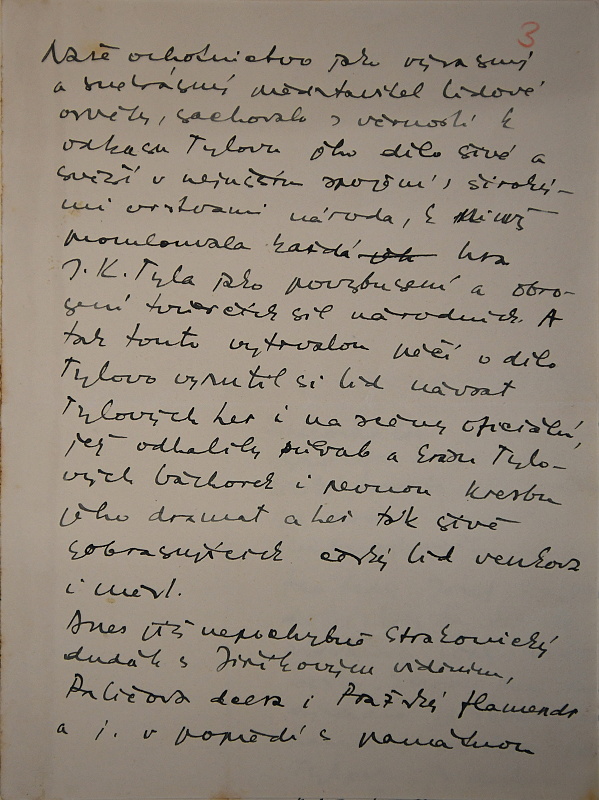 3
Naše ochotnictvo jako výrazný
a svérázný představitel lidové
osvěty, zachovalo s věrností k
odkazu Tylovu jeho dílo živé a
svěží v nejužším spojení s široký-
mi vrstvami národa, k nimž
promlouvala každá hra
J. K. Tyla jako povzbuzení a obro-
zení tvůrčích sil národních. A
tak touto vytrvalou péčí o dílo
Tylovo vynutil si lid návrat
Tylových her i na scény oficiální,
jež odhalily půvab a krásu Tylo-
vých báchorek i pevnou kresbu
jeho dramat a her tak živě
zobrazujících český lid venkova
i měst.
Dnes již nepochybně Strakonický
dudák s Jiříkovým viděním,
Paličova dcera i Pražský flamendr
a j. v popředí s památnou